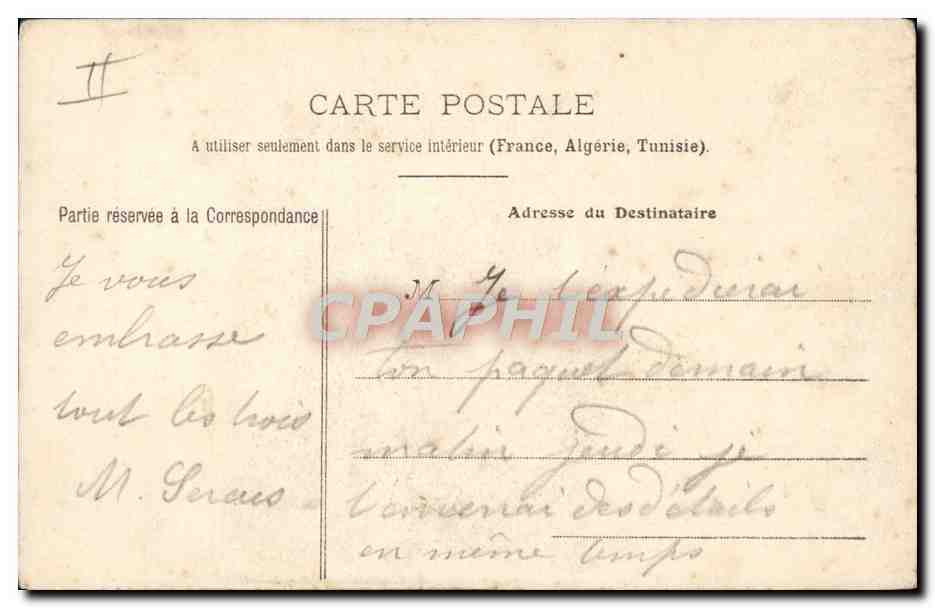 II
CARTE POSTALE
A utiliser seulement dans le service intérieur (France, Algérie, Tunisie).
Partie réservée à la Correspondance
Adresse du Destinataire
M Je t'expédierai
ton paquet demain
matin jeudi je
t'enverrai des détails
en même temps
Je vous
embrasse
tout les trois
M.
CPAPHIL